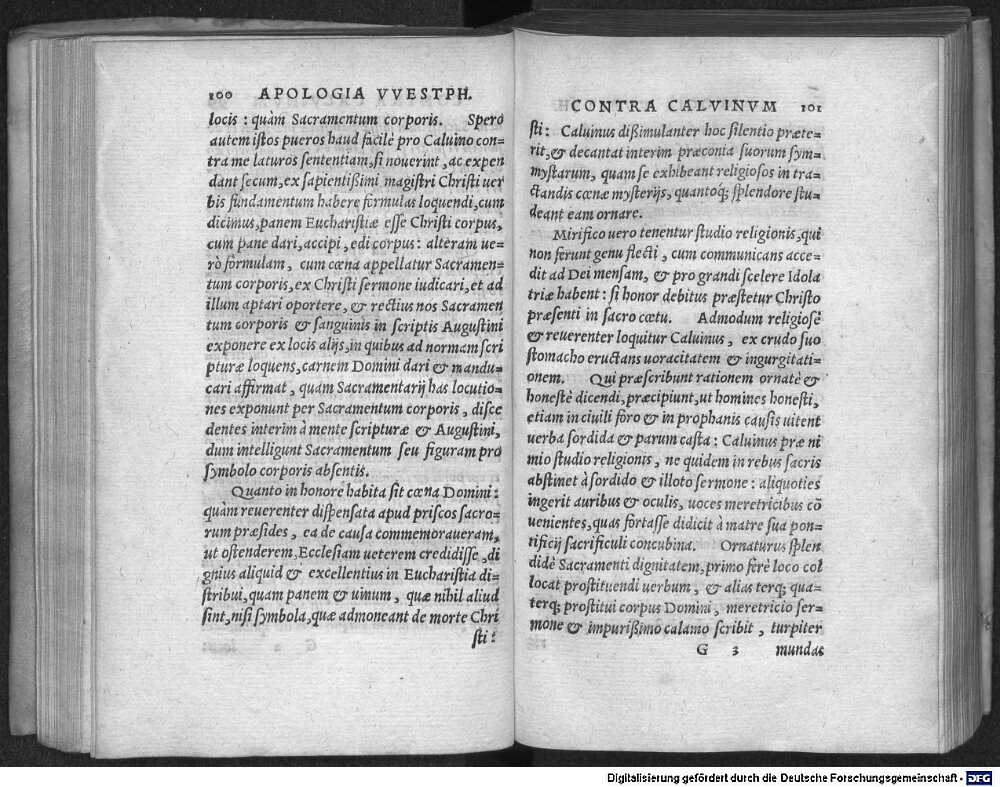 100 APOLOGIA VVESTPH.
locis : quàm Sacramentum corporis. Spero
autem istos pueros haud facilè pro Caluino con-
tra me laturos sententiam, si nouerint, ac expen
dant secum, ex sapientißimi magistri Christi uer
bis fundamentum habere formulas loquendi, cum
dicimus, panem Eucharistiæ esse Christi corpus,
cum pane dari, accipi, edi corpus: alteram ue-
rò formulam, cum cœna appellatur Sacramen-
tum corporis, ex Christi sermone iudicari, et ad
illum aptari oportere, & rectius nos Sacramen
tum corporis & sanguinis in scriptis Augustini
exponere ex locis alijs, in quibus ad normam scri
pturæ loquens, carnem Domini dari & mandu-
cari affirmat, quam Sacramentarij has locutio-
nes exponunt per Sacramentum corporis, disce
dentes interim à mente scripturæ & Augustini,
dum intelligunt Sacramentum seu figuram pro
symbolo corporis absentis.
Quanto in honore habita sit cœna Domini:
quàm reuerenter dispensata apud priscos sacro-
rum præsides, ea de causa commemoraueram,
ut ostenderem, Ecclesiam ueterem credidisse, di
gnius aliquid & excellentius in Eucharistia di-
stribui, quam panem & uinum, quæ nihil aliud
sint, nisi symbola, quæ admoneant de morte Chri
sti:
CONTRA CALVINVM 101
sti: Caluinus dißimulanter hoc silentio præte-
rit, & decantat interim præconia suorum sym-
mystarum, quam se exhibeant religiosos in tra-
ctandis cœnæ mysterijs, quantoq; splendore stu-
deant eam ornare.
Mirifico uero tenentur studio religionis, qui
non ferunt genu flecti, cum communicans acce-
dit ad Dei mensam, & pro grandi scelere Idola
triæ habent : si honor debitus præstetur Christo
præsenti in sacro cœtu. Admodum religiosè
& reuerenter loquitur Caluinus, ex crudo suo
stomacho eructans uoracitatem & ingurgitati-
onem. Qui præscribunt rationem ornatè &
honestè dicendi, præcipiunt, ut homines honesti,
etiam in ciuili foro & in prophanis causis uitent
uerba sordida & parum casta : Caluinus præ ni
mio studio religionis, ne quidem in rebus sacris
abstinet à sordido & illoto sermone : aliquoties
ingerit auribus & oculis, uoces meretricibus cõ
uenientes, quas fortasse didicit à matre sua pon-
tificij sacrificuli concubina. Ornaturus splen
didè Sacramenti dignitatem, primo ferè loco col
locat prostituendi uerbum, & alias terq; qua-
terq; prostitui corpus Domini, meretricio ser-
mone & impurißimo calamo scribit, turpiter
G 3 mundas
Digitalisierung gefördert durch die Deutsche Forschungsgemeinschaft - DFG